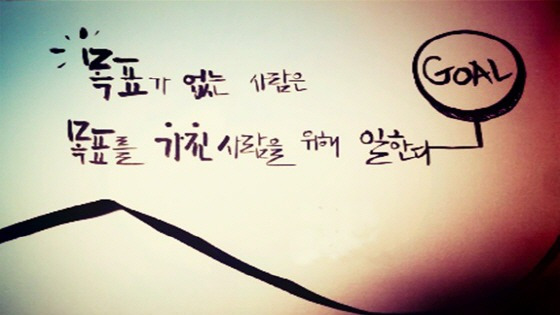 목표가 없는 사람은
GOAL
목표를 가진 사람을 위해 일한다